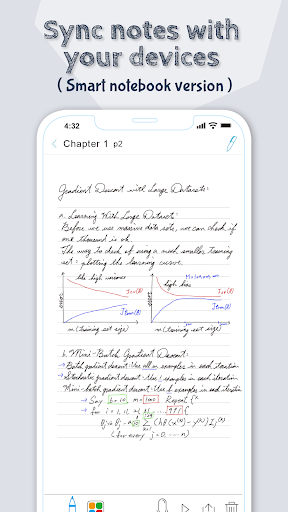 Sync notes with
your devices
( Smart notebook version )
4:32
Chapter 1 p2
Gradient Descent with Large Datasets:
a. Learning With Large Dataset:
Before we use massive data sets, we can check if
one thousand is ok.
The way to check if using a much smaller training
set: plotting the learning curve.
the high variance
high bias
error
error
m (training set size)
m (training set size)
b. Mini-Batch Gradient Descent:
→ Batch gradient descent: Use all m examples in each iteration
→ Stochastic gradient descent: Use 1 examples in each iteration
Mini-batch gradient descent: Use b examples in each iteration
→ Say b = 10, m = 1000 Repeat {
→ for i = 1, 11, 21, ... 991 {
(for every j = 0, ... n)